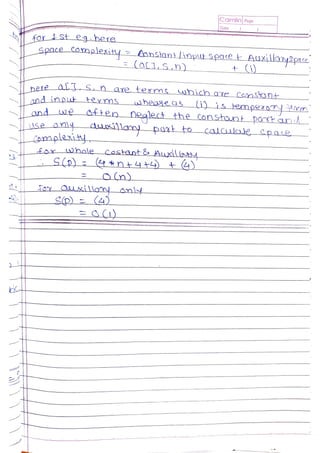 Camlin Page
Date / /
for 1st eg. here
Space complexity = Constant/input space + Auxillary space
= (a[], s, n) + (i)
here a[], s, n are terms which are constant
and input terms whereas (i) is temperory item
and we often neglect the constant part and
use only auxillary part to calculate space
complexity.
for whole costant & Auxillary
S(p) = (4*n+4+4) + (4)
= O(n)
for auxillary only
S(p) = (4)
= O(1)